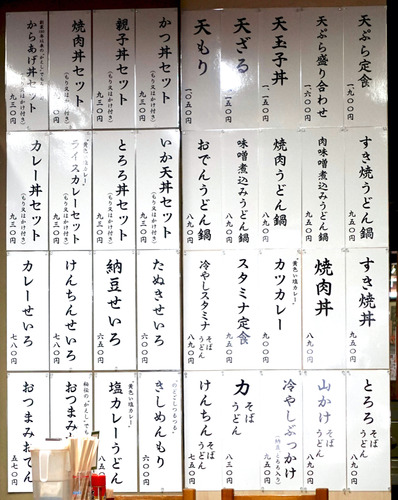 天ぷら定食
一九〇〇円
天ぷら盛り合わせ
一六〇〇円
天玉子丼
一一五〇円
天ざる
一〇五〇円
天もり
一〇五〇円
かつ丼セット
(もり又はかけ付き)
九三〇円
親子丼セット
(もり又はかけ付き)
九三〇円
焼肉丼セット
(もり又はかけ付き)
からあげ丼セット
(もり又はかけ付き)
九三〇円
すき焼うどん鍋
九五〇円
肉味噌煮込みうどん鍋
九五〇円
焼肉うどん鍋
八九〇円
味噌煮込みうどん鍋
八九〇円
おでんうどん鍋
八九〇円
いか天丼セット
(もり又はかけ付き)
九三〇円
とろろ丼セット
(もり又はかけ付き)
九三〇円
ライスカレーセット
(もり又はかけ付き)
九三〇円
カレー丼セット
(もり又はかけ付き)
九三〇円
すき焼丼
八五〇円
焼肉丼
八九〇円
"黄色い塩カレー"
カツカレー
九〇〇円
スタミナ定食
九五〇円
冷やしスタミナ そば うどん
八九〇円
たぬきせいろ
六〇〇円
納豆せいろ
六五〇円
けんちんせいろ
七八〇円
カレーせいろ
七八〇円
とろろ そば うどん
八九〇円
山かけ そば うどん
八九〇円
冷やしぶっかけ
九五〇円
力 そば うどん
八三〇円
けんちん そば うどん
七五〇円
"のどごしつるつる"
きしめんもり
六〇〇円
"黄色い塩カレー"
塩カレーうどん
八五〇円
秘伝の"かえし"でち
おつまみお
おつまみおでん
五七〇円